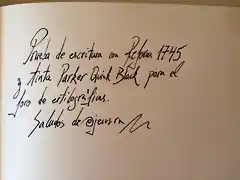 Prueba de escritura con Reform 1745
y tinta Parker Quink Black para el
foro de estilográficas.
Saludos de